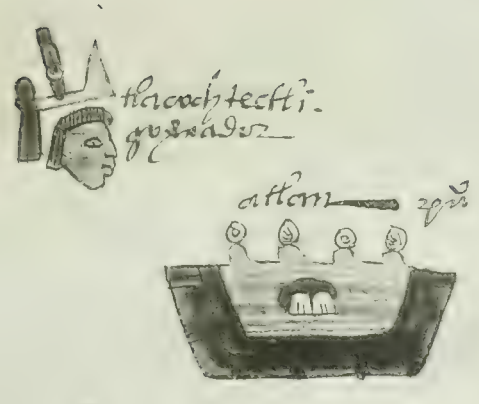 tlacochtectli.
governador
atlan puo